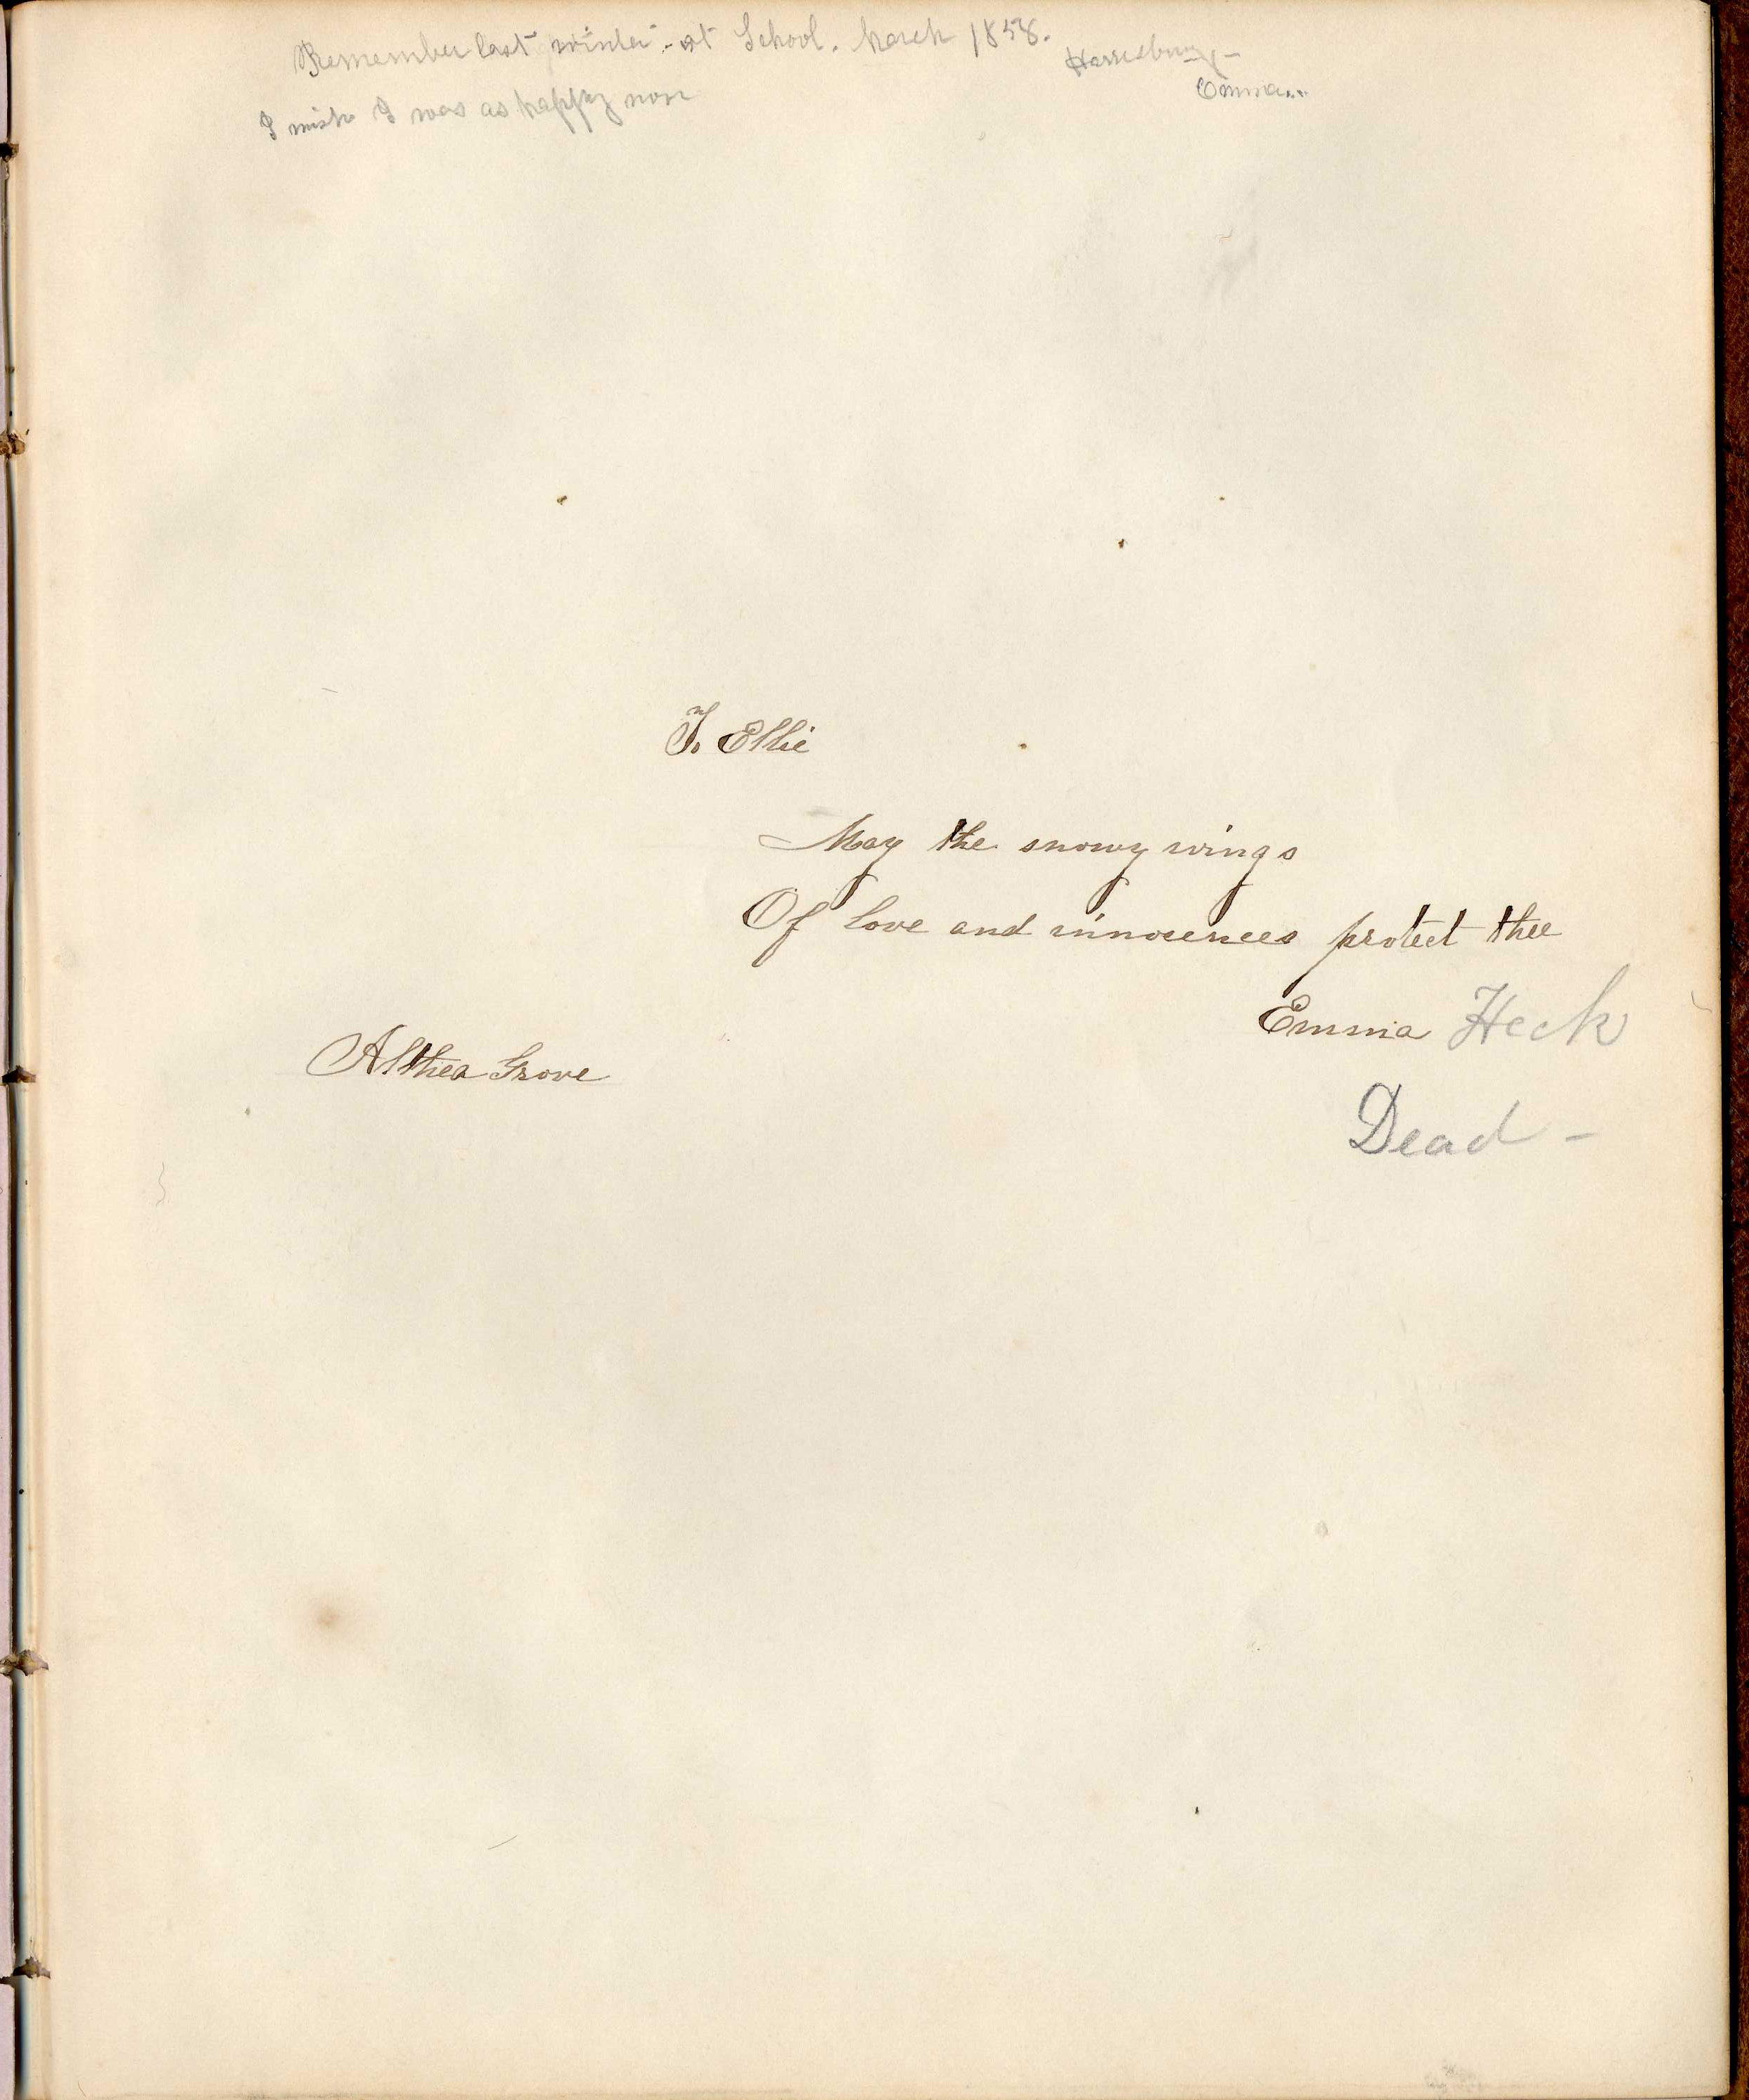 Remember last winter - at School. March 1858.
Harrisburg -
Emma...
I wish I was as happy now
To Ellie
May the snowy wings
Of love and innocences protect thee
Emma Heck
Althea Grove
Dead -